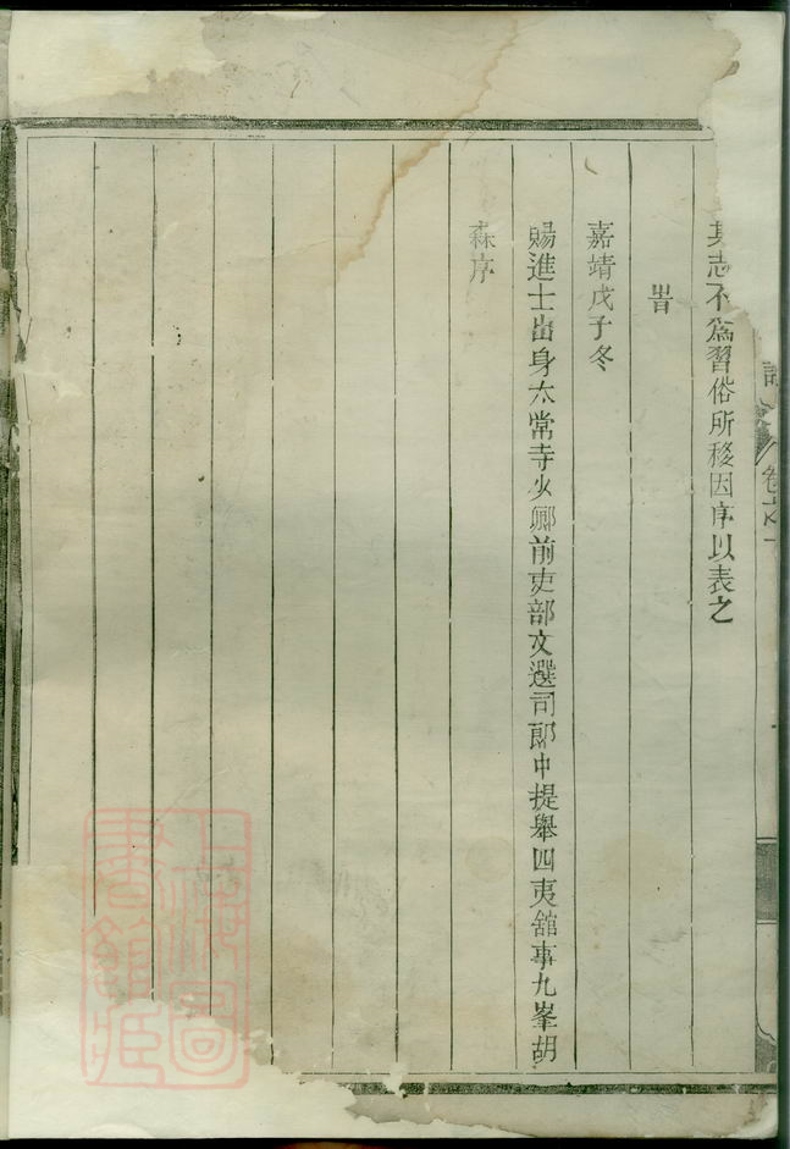 其志不為習俗所移因序以表之
旹
嘉靖戊子冬
賜進士出身太常寺少卿前吏部文選司郎中提舉四夷舘事九峯胡
森序
卷之一
上海圖
書館藏